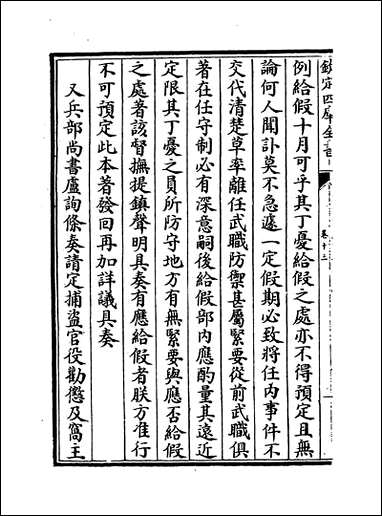 欽定四庫全書
例給假十月可乎其丁憂給假之處亦不得預定且無
論何人聞訃莫不急遽一定假期必致將任内事件不
交代清楚草率離任武職防禦甚屬緊要從前武職俱
著在任守制必有深意嗣後給假部内應酌量其遠近
定限其丁憂之員所防守地方有無緊要與應否給假
之處著該督撫提鎮聲明具奏有應給假者朕方准行
不可預定此本著發回再加詳議具奏
又兵部尚書盧詢條奏請定捕盜官役勸懲及窩主